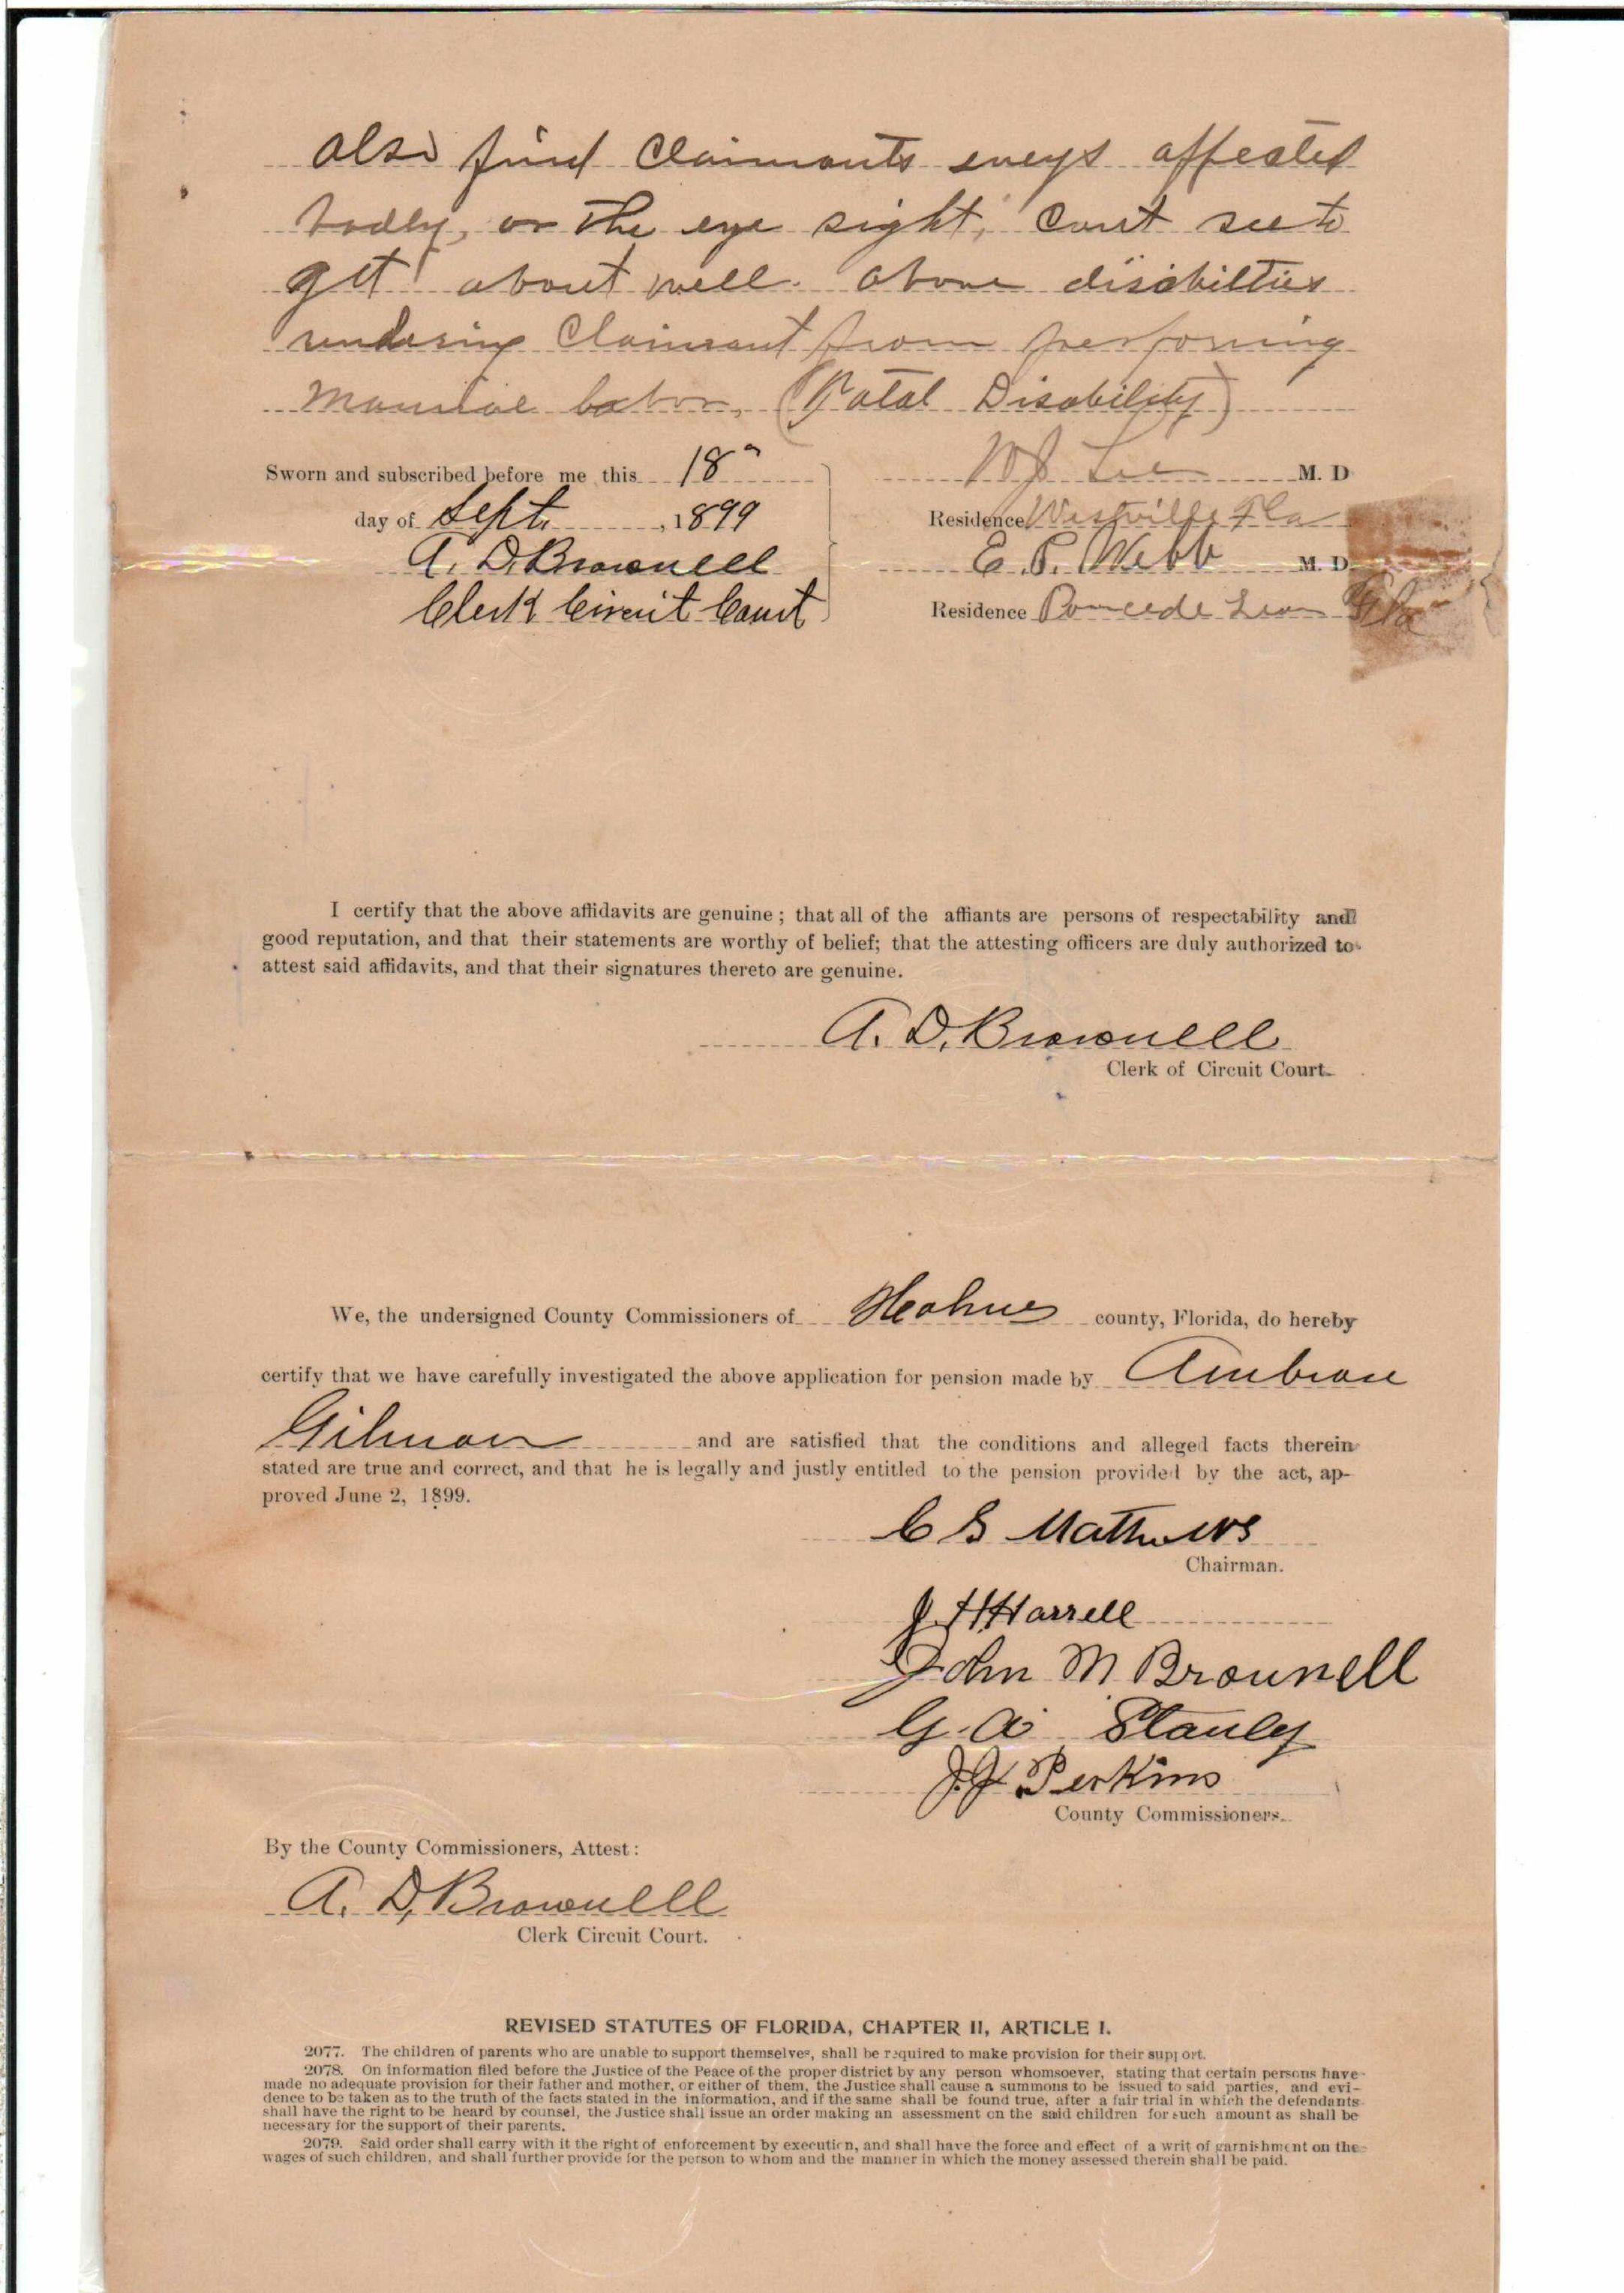 also find Claimants eneys affected
badly, or the eye sight, Cant see to
get about well. above disabilties
rendering Claimant from perforning
manual labor, (Total Disability)
Sworn and subscribed before me this 18" WJ Lee M. D
day of Sept. , 1899 Residence Westville Fla
A. D. Brownell E. P. Webb M. D
Clerk Circuit Court Residence Ponce de Leon Fla
I certify that the above affidavits are genuine ; that all of the affiants are persons of respectability and
good reputation, and that their statements are worthy of belief; that the attesting officers are duly authorized to
attest said affidavits, and that their signatures thereto are genuine.
A. D. Brownell
Clerk of Circuit Court.
We, the undersigned County Commissioners of Holmes county, Florida, do hereby
certify that we have carefully investigated the above application for pension made by Ambrose
Gilman and are satisfied that the conditions and alleged facts therein
stated are true and correct, and that he is legally and justly entitled to the pension provided by the act, ap-
proved June 2, 1899.
C G Mathews
Chairman.
J. H Harrell
John M Brownell
G. A Stanley
J. J Perkins
County Commissioners.
By the County Commissioners, Attest :
A. D. Brownell
Clerk Circuit Court.
REVISED STATUTES OF FLORIDA, CHAPTER II, ARTICLE I.
2077. The children of parents who are unable to support themselves, shall be required to make provision for their support.
2078. On information filed before the Justice of the Peace of the proper district by any person whomsoever, stating that certain persons have
made no adequate provision for their father and mother, or either of them, the Justice shall cause a summons to be issued to said parties, and evi-
dence to be taken as to the truth of the facts stated in the information, and if the same shall be found true, after a fair trial in which the defendants
shall have the right to be heard by counsel, the Justice shall issue an order making an assessment on the said children for such amount as shall be
necessary for the support of their parents.
2079. Said order shall carry with it the right of enforcement by execution, and shall have the force and effect of a writ of garnishment on the
wages of such children, and shall further provide for the person to whom and the manner in which the money assessed therein shall be paid.